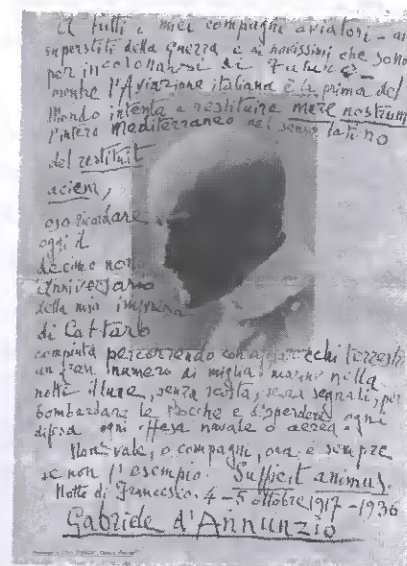 A tutti i miei compagni aviatori - ai
superstiti della guerra e ai novissimi che sono
per incoronarsi di Futuro -
mentre l'Aviazione italiana è la prima del
Mondo intenta a restituire mare nostrum
l'intero Mediterraneo nel senso latino
del restituit
aciem,
oso ricordare
oggi il
decimo nono
Anniversario
della mia impresa
di Cattaro
compiuta percorrendo con apparecchi terrestri
un gran numero di miglia marine nella
notte illune, senza scorta, senza segnali, per
bombardare le Bocche e disperdere ogni
difesa ogni offesa navale o aerea.
Non vale, o compagni, ora e sempre
se non l'esempio. Sufficit animus.
Notte di Francesco. 4-5 ottobre 1917-1936
Gabriele d'Annunzio